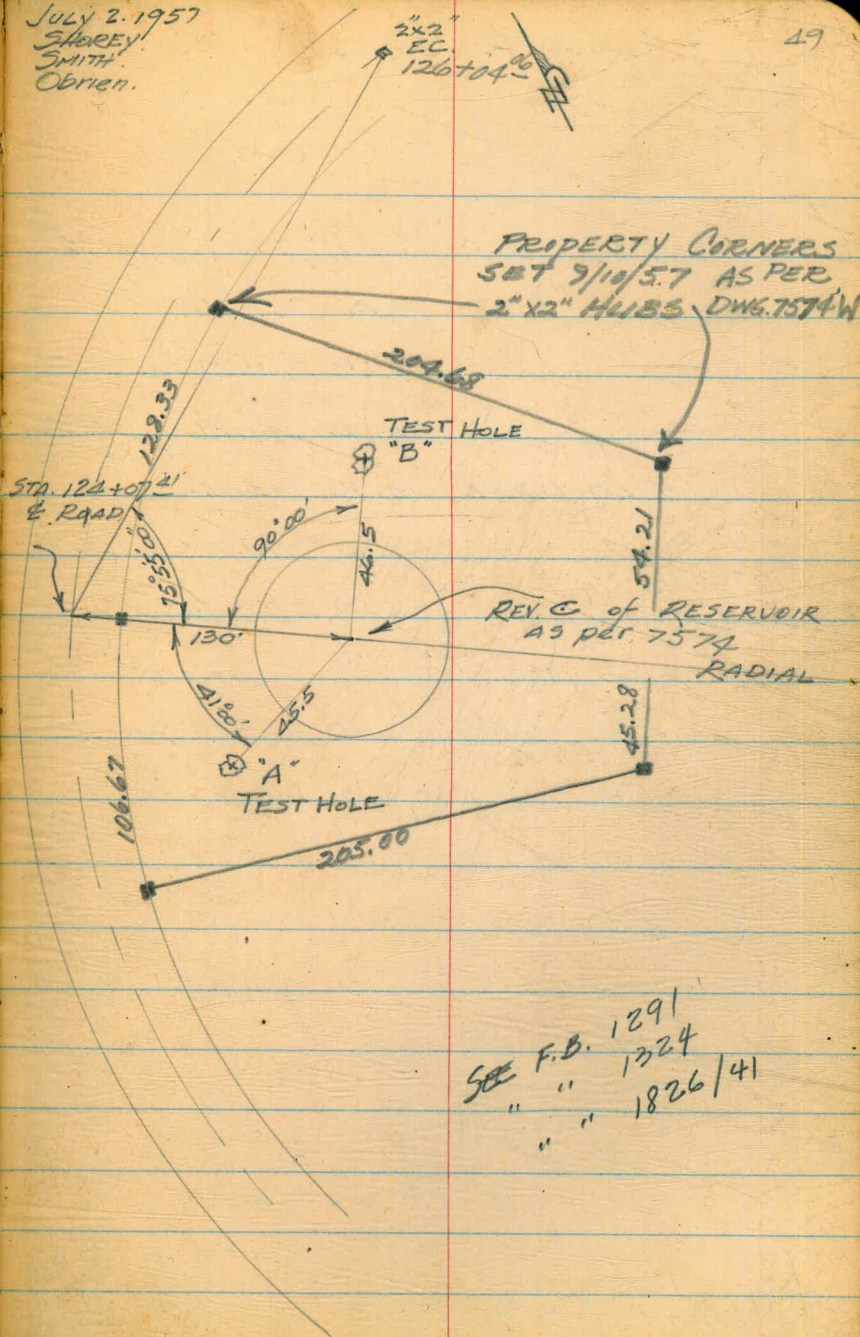 July 2. 1957
SHOREY
SMITH
Obrien.
2"x2"
EC.
126+04.06
49
PROPERTY CORNERS
SET 9/10/57 AS PER
2"x2" HUBS DWG. 7574 W
204.68
128.33
TEST HOLE
"B"
STA. 124+07.41
℄ ROAD
90°00'
75°55'00"
46.5
54.21
REV. C of RESERVOIR
AS per 7574
RADIAL
130'
41°00'
45.5
45.28
"A"
TEST HOLE
106.67
205.00
SEE F.B. 1291
" " 1324
" " 1826/41